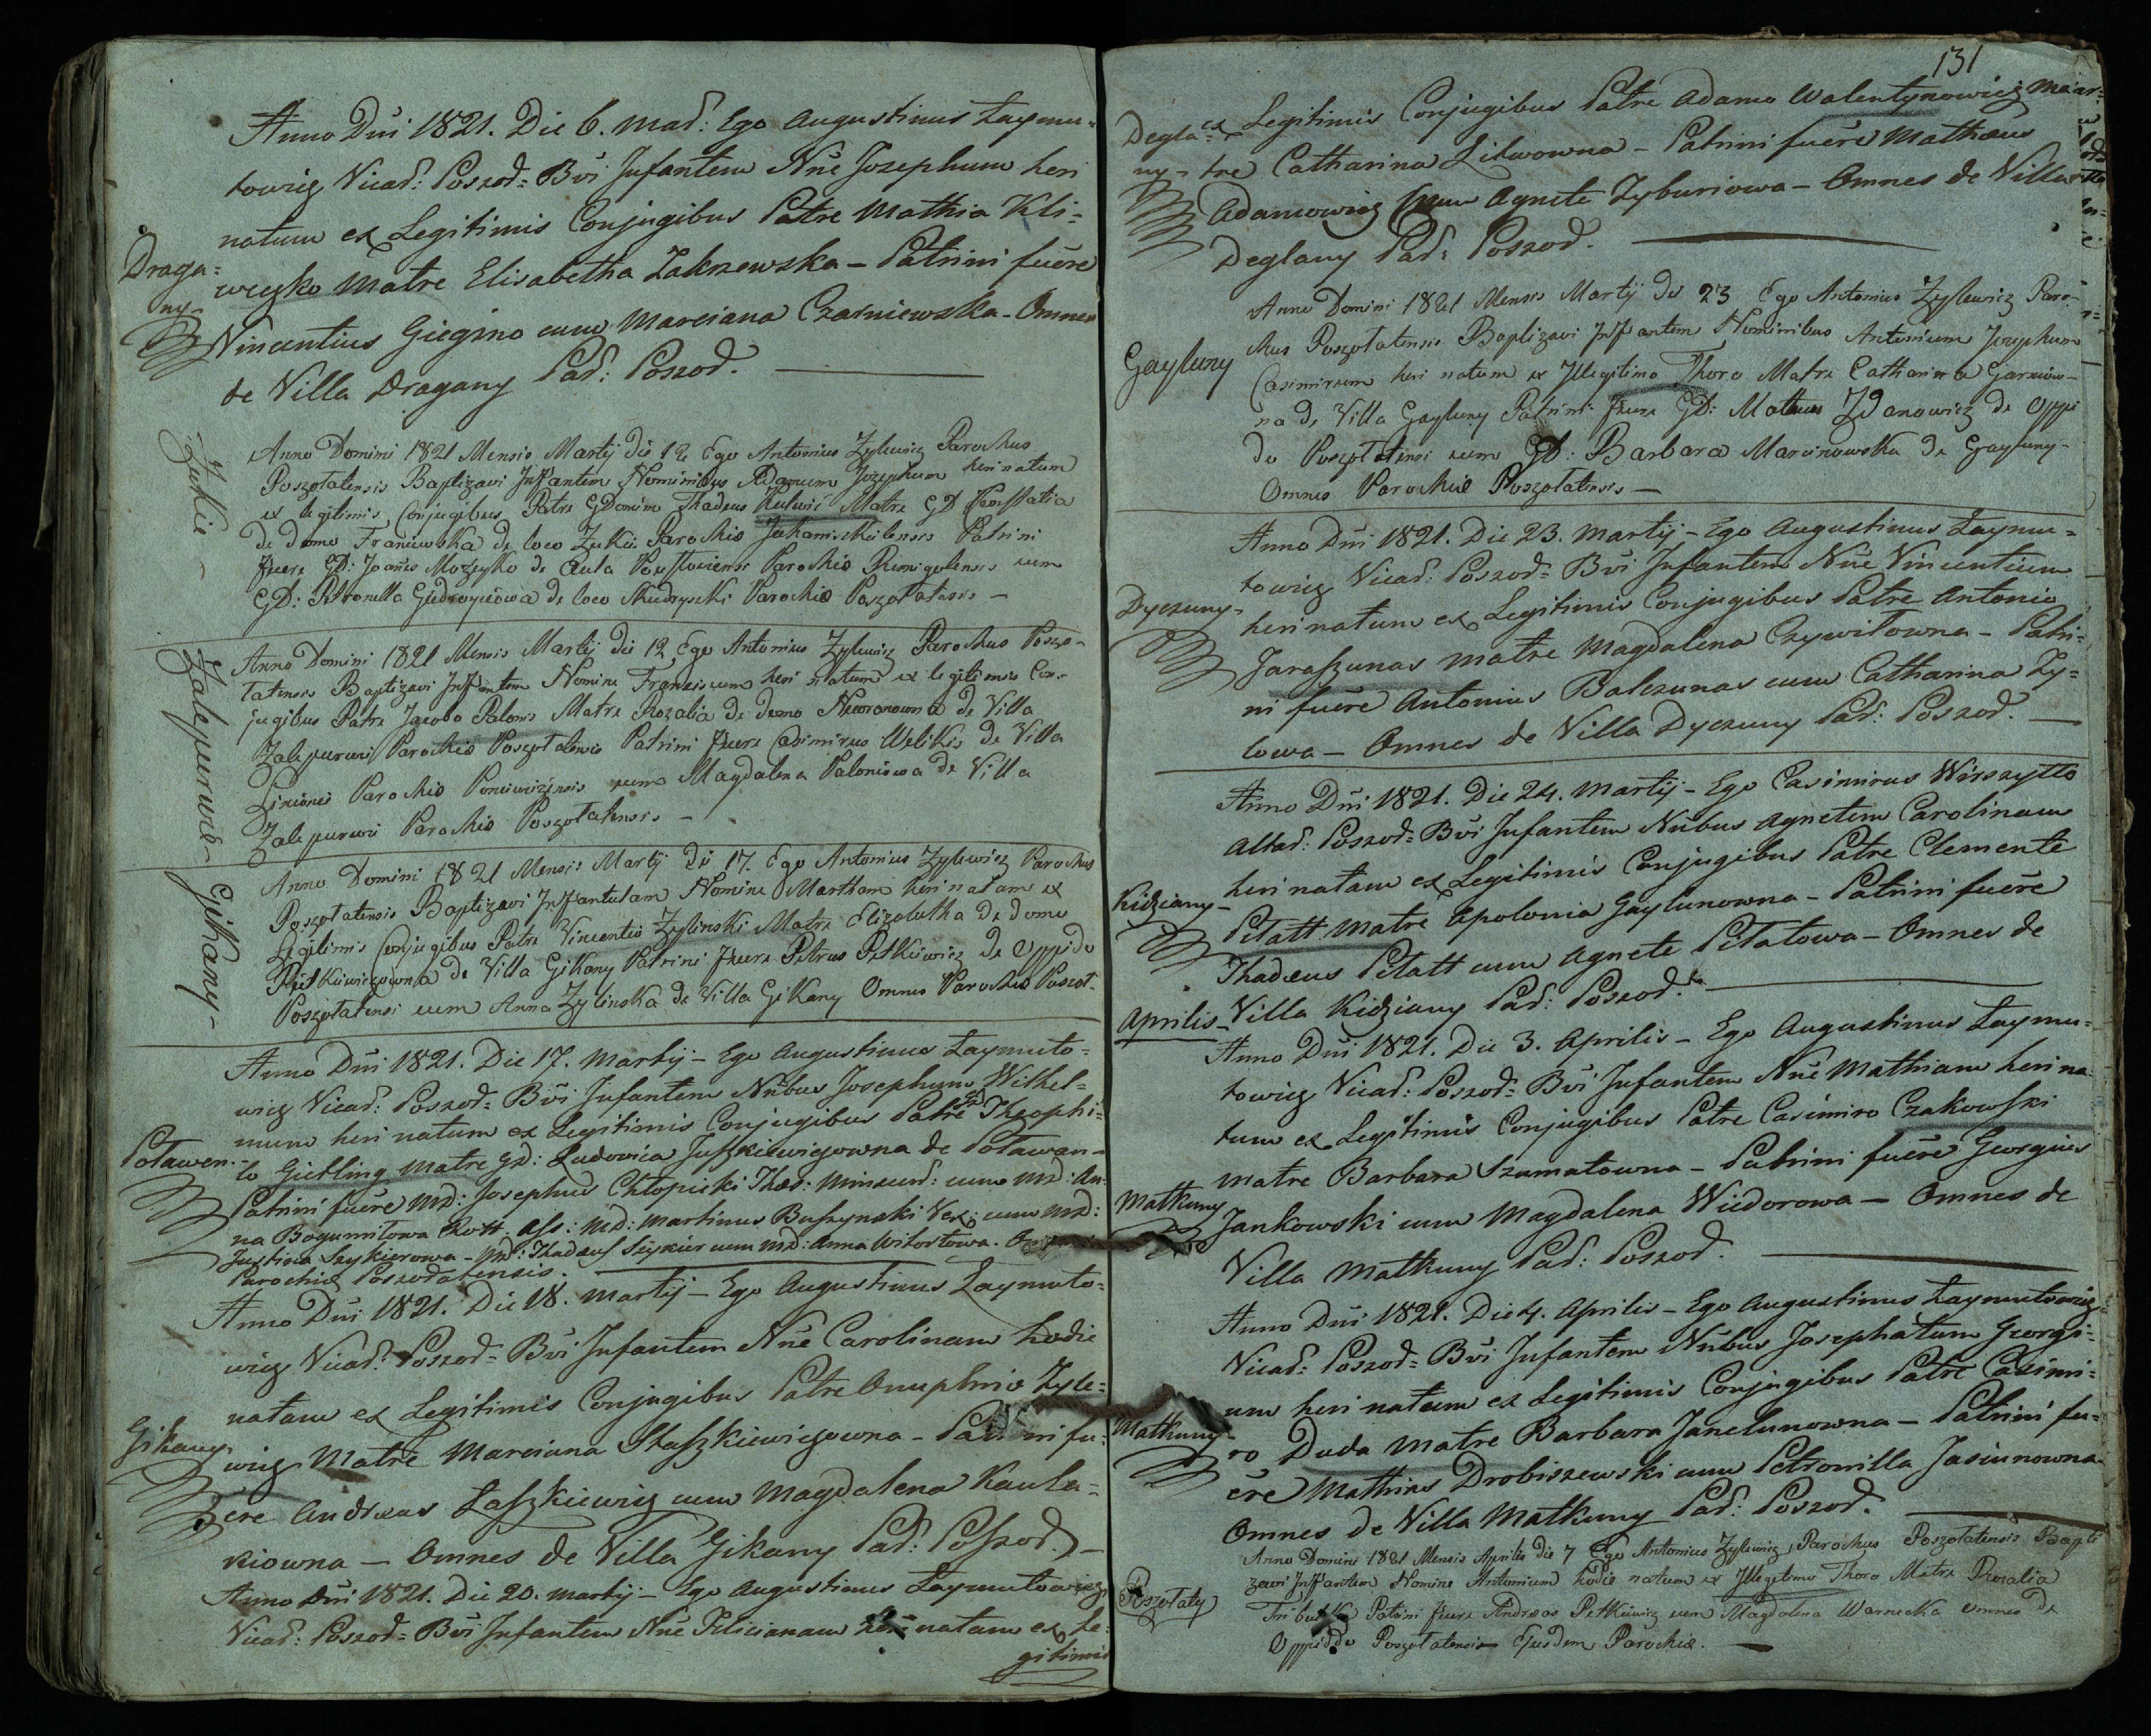 Anno Dni 1821. Die 6. Mar: Ego Augustinus Laymu-
towicz Vicar: Poszoł= Bvi Infantem Nne Josephum heri
natum ex Legitimis Conjugibus Patre Mathia Kli-
Draga=
ny-
wczko Matre Elisabetha Zakrzewska - Patrini fuere
Vincentius Giegzno cum Marciana Czarniewska - Omnes
de Villa Dragany Par: Poszoł.
Żukie -
Anno Domini 1821 Mensis Martij die 12 Ego Antonius Zylewicz Parochus
Poszołatensis Baptizavi Inffantem Nominibus Adamum Jozephum heri natum
ex legitimis Conjugibus Patre GDomino Thadeus Kulwic Matre GD
de domo Franciewska de loco Żukie Parochiæ Johaniszkielensis Patrini
fuere GD: Joañes Mozeyko de Aula Parochiæ Remigolensis cum
GD: Petronella Giedroyciowa de loco Parochiæ Poszołatensis -
Zalepurwie -
Anno Domini 1821 Mensis Martij die 12 Ego Antonius Zylewicz Parochus Poszo-
łatensis Baptizavi Inffantem Nomine Franciscum heri natum ex legitimis Con-
jugibus Patre Jacobo Palonis Matre Rozalia de domo Neworanowna de Villa
Zalepurwie Parochiæ Poszołatensis Patrini fuere Casimirus Welikis de Villa
Parochiæ Poniewiezensis cum Magdalena Paloniowa de Villa
Zalepurwie Parochiæ Poszołatensis -
Gikany -
Anno Domini 1821 Mensis Martij die 17. Ego Antonius Zylewicz Parochus
Poszołatensis Baptizavi Inffantulam Nomine Martham heri natam ex
Legitimis Conjugibus Patre Vincentio Zylinski Matre Elizabetha de domo
Pietkiewiczowna de Villa Gikany Patrini fuere Petrus Petkiewicz de Oppido
Poszołatensi cum Anna Zylinska de Villa Gikany Omnes Parochiæ Poszoł-
Anno Dni 1821. Die 17. Martij - Ego Augustinus Laymuto=
wicz Vicar: Poszoł= Bvi Infantem Nnibus Josephum Wilhel=
mum heri natum ex Legitimis Conjugibus Patre GD Theophi=
Poławen.-
lo Giedling Matre GD: Ludovica Juszkiewiczowna de Poławen-
Patrini fuere MD: Josephus Chłopicki Thes: Minscens: cum MD: An=
na Bogumiłowa Rott. Ass: MD: Martinus Buszynski Vex: cum MD:
Justina Szykierowa - MD: Thadeus Szykier cum MD: Anna Witortowa.
Parochiæ Poszołatensis.
Anno Dni 1821. Die 18. Martij - Ego Augustinus Laymuto=
wicz Vicar: Poszoł= Bvi Infantem Nne Carolinam hodie
natam ex Legitimis Conjugibus Patre Onuphrio Zyle=
Gikany-
wicz Matre Marciana Staszkiewiczowna - Patrini fu-
ere Andreas Laszkiewicz cum Magdalena Kaula=
kiowna - Omnes de Villa Gikany Par: Poszoł. -
Anno Dni 1821. Die 20. Martij - Ego Augustinus Laymutowicz
Vicar: Poszoł= Bvi Infantem Nne Felicianam heri natam ex Le=
gitimis
131
Degla=
ny-
ex Legitimis Conjugibus Patre Adamo Walentynowicz Ma-
tre Catharina Litwowna - Patrini fuere Mathæus
Adamowicz cum Agnete Zyburiowa - Omnes de Villa
Deglany Par: Poszoł.
Gayluny
Anno Domini 1821 Mensis Martij die 23 Ego Antonius Zylewicz Paro-
chus Poszołatensis Baptizavi Inffantem Nominibus Antonium Josephum
Casimirum heri natum ex Illegitimo Thoro Matre Catharina
na de Villa Gayluny Patrini fuere GD: Matheus Zdanowicz de Oppi
do Poszołatensi cum GD: Barbara Marcinowska de Gayluny-
Omnes Parochiæ Poszołatensis -
Anno Dni 1821. Die 23. Martij - Ego Augustinus Laymu=
towicz Vicar: Poszoł= Bvi Infantem Nne Vincentium
Dyczuny-
heri natum ex Legitimis Conjugibus Patre Antonio
Jaraszunas Matre Magdalena Czywiłowna - Patri-
ni fuere Antonius Balczunas cum Catharina Zy=
lowa - Omnes de Villa Dyczuny Par: Poszoł. -
Anno Dni 1821. Die 24. Martij - Ego Casimirus Wirszyłło
Altar: Poszoł= Bvi Infantem Nnibus Agnetem Carolinam
Kidziany-
heri natam ex Legitimis Conjugibus Patre Clemente
Petatt Matre Apolonia Gaylunowna - Patrini fuere
Thadæus Petatt cum Agnete Petatowa - Omnes de
Villa Kidziany Par: Poszoł.
Aprilis-
Anno Dni 1821. Die 3. Aprilis - Ego Augustinus Laymu=
towicz Vicar: Poszoł= Bvi Infantem Nne Mathiam heri na-
tum ex Legitimis Conjugibus Patre Casimiro Czakowski
Matre Barbara Szumatowna - Patrini fuere Georgius
Matkuny
Jankowski cum Magdalena Wiedorowa - Omnes de
Villa Matkuny Par: Poszoł.
Anno Dni 1821. Die 4. Aprilis - Ego Augustinus Laymutowicz
Vicar: Poszoł= Bvi Infantem Nnibus Josephatum Georgi=
um heri natum ex Legitimis Conjugibus Patre Casimi=
Matkuny-
ro Duda Matre Barbara Janelunowna - Patrini fu=
ere Mathias Drobiszewski cum Petronilla Jasiunowna-
Omnes de Villa Matkuny Par: Poszoł.
Poszołaty
Anno Domini 1821 Mensis Aprilis die 7 Ego Antonius Zylewicz Parochus Poszołatensis Bapti
zavi Inffantem Nomine Antonium hodie natum ex Illegitimo Thoro Matre Rozalia
Patrini fuere Andreas Petkiewicz cum Magdalena Warnecka Omnes de
Oppido Poszołatensis Ejusdem Parochiæ. -